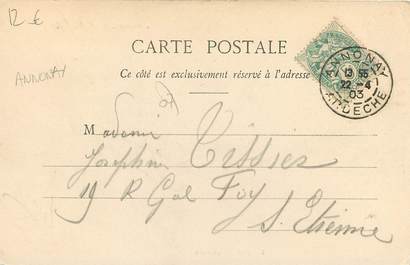 12 €
CARTE POSTALE
Ce côté est exclusivement réservé à l'adresse
ANNONAY
ANNONAY
13 55
22 -4
03
ARDECHE
M
Joséphine Tissier
19 R Gal Foy
S. Etienne